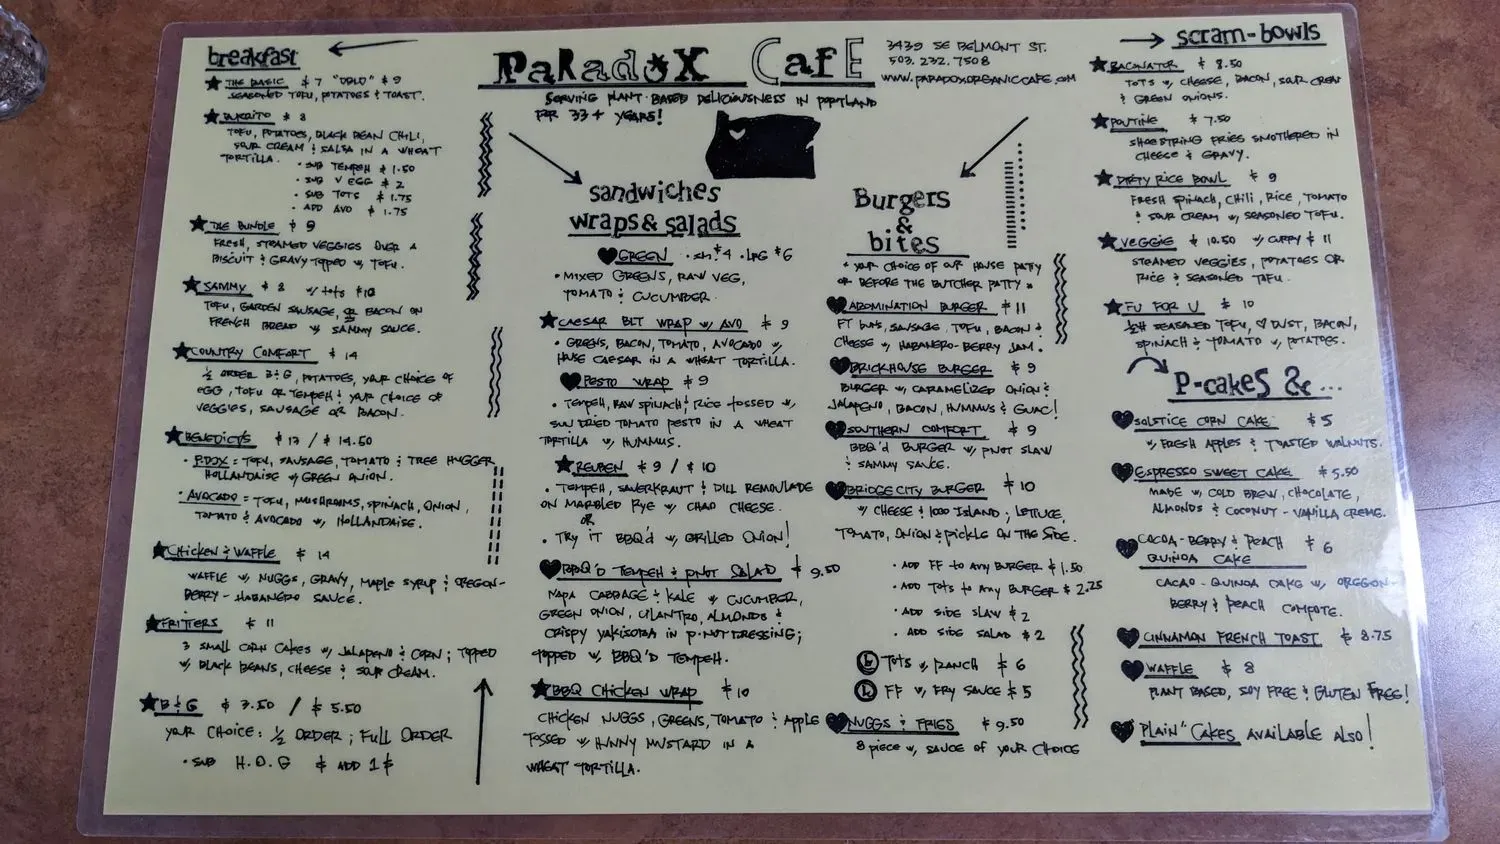 PaRadoX CafE
3439 SE BELMONT ST.
503.232.7508
WWW.PARADOXORGANICCAFE.COM
SERVING PLANT-BASED DELICIOUSNESS IN PORTLAND
FOR 33+ YEARS!
breakfast
THE BASIC $7 "DBLO" $9
SEASONED TOFU, POTATOES & TOAST.
BURRITO $8
TOFU, POTATOES, BLACK BEAN CHILI,
SOUR CREAM & SALSA IN A WHEAT
TORTILLA.
• SUB TEMPEH $1.50
• SUB V EGG $2
• SUB TOTS $1.75
• ADD AVO $1.75
THE BUNDLE $9
FRESH, STEAMED VEGGIES OVER A
BISCUIT & GRAVY TOPPED W/ TOFU.
SAMMY $8 W/ TOTS $10
TOFU, GARDEN SAUSAGE, OR BACON ON
FRENCH BREAD W/ SAMMY SAUCE.
COUNTRY COMFORT $14
½ ORDER B&G, POTATOES, YOUR CHOICE OF
EGG, TOFU OR TEMPEH & YOUR CHOICE OF
VEGGIES, SAUSAGE OR BACON.
BENEDICTS $13 / $14.50
• P.DX = TOFU, SAUSAGE, TOMATO & TREE HUGGER
HOLLANDAISE W/ GREEN ONION.
• AVOCADO = TOFU, MUSHROOMS, SPINACH, ONION,
TOMATO & AVOCADO W/ HOLLANDAISE.
CHICKEN & WAFFLE $14
WAFFLE W/ NUGGS, GRAVY, MAPLE SYRUP & OREGON-
BERRY-HABANERO SAUCE.
FRITTERS $11
3 SMALL CORN CAKES W/ JALAPENO & CORN; TOPPED
W/ BLACK BEANS, CHEESE & SOUR CREAM.
B&G $3.50 / $5.50
YOUR CHOICE: ½ ORDER; FULL ORDER
• SUB H.O.G $ ADD 1$
sandwiches
wraps & salads
GREEN • SM $4 • LRG $6
• MIXED GREENS, RAW VEG,
TOMATO & CUCUMBER.
CAESAR BLT WRAP W/ AVO $9
• GREENS, BACON, TOMATO, AVOCADO W/
HOUSE CAESAR IN A WHEAT TORTILLA.
PESTO WRAP $9
• TEMPEH, RAW SPINACH & RICE TOSSED W/
SUN DRIED TOMATO PESTO IN A WHEAT
TORTILLA W/ HUMMUS.
REUBEN $9 / $10
• TEMPEH, SAUERKRAUT & DILL REMOULADE
ON MARBLED RYE W/ CHAO CHEESE.
OR
• TRY IT BBQ'd W/ GRILLED ONION!
BBQ'D TEMPEH & PNUT SALAD $9.50
NAPA CABBAGE & KALE W/ CUCUMBER,
GREEN ONION, CILANTRO, ALMONDS &
CRISPY YAKISOBA IN P-NUT DRESSING;
TOPPED W/ BBQ'D TEMPEH.
BBQ CHICKEN WRAP $10
CHICKEN NUGGS, GREENS, TOMATO & APPLE
TOSSED W/ HUNNY MUSTARD IN A
WHEAT TORTILLA.
Burgers
&
bites
* YOUR CHOICE OF OUR HOUSE PATTY
OR BEFORE THE BUTCHER PATTY *
ABOMINATION BURGER $11
FT BUNS, SAUSAGE, TOFU, BACON &
CHEESE W/ HABANERO-BERRY JAM.
BRICKHOUSE BURGER $9
BURGER W/ CARAMELIZED ONION &
JALAPENO, BACON, HUMMUS & GUAC!
SOUTHERN COMFORT $9
BBQ'd BURGER W/ PNUT SLAW
& SAMMY SAUCE.
BRIDGE CITY BURGER $10
W/ CHEESE & 1000 ISLAND; LETTUCE,
TOMATO, ONION & PICKLE ON THE SIDE.
• ADD FF TO ANY BURGER $1.50
• ADD TOTS TO ANY BURGER $2.25
• ADD SIDE SLAW $2
• ADD SIDE SALAD $2
TOTS W/ RANCH $6
FF W/ FRY SAUCE $5
NUGGS & FRIES $9.50
8 PIECE W/ SAUCE OF YOUR CHOICE
scram-bowls
BACONATOR $8.50
TOTS W/ CHEESE, BACON, SOUR CREAM
& GREEN ONIONS.
POUTINE $7.50
SHOESTRING FRIES SMOTHERED IN
CHEESE & GRAVY.
DIRTY RICE BOWL $9
FRESH SPINACH, CHILI, RICE, TOMATO
& SOUR CREAM W/ SEASONED TOFU.
VEGGIE $10.50 W/ CURRY $11
STEAMED VEGGIES, POTATOES OR
RICE & SEASONED TOFU.
FU FOR U $10
SEASONED TOFU, ♡ DUST, BACON,
SPINACH & TOMATO W/ POTATOES.
P-cakeS & ...
SOLSTICE CORN CAKE $5
W/ FRESH APPLES & TOASTED WALNUTS.
ESPRESSO SWEET CAKE $5.50
MADE W/ COLD BREW, CHOCOLATE,
ALMONDS & COCONUT-VANILLA CREME.
COCOA-BERRY & PEACH
QUINOA CAKE $6
CACAO-QUINOA CAKE W/ OREGON-
BERRY & PEACH COMPOTE.
CINNAMON FRENCH TOAST $8.75
WAFFLE $8
PLANT BASED, SOY FREE & GLUTEN FREE!
"PLAIN" CAKES AVAILABLE ALSO!